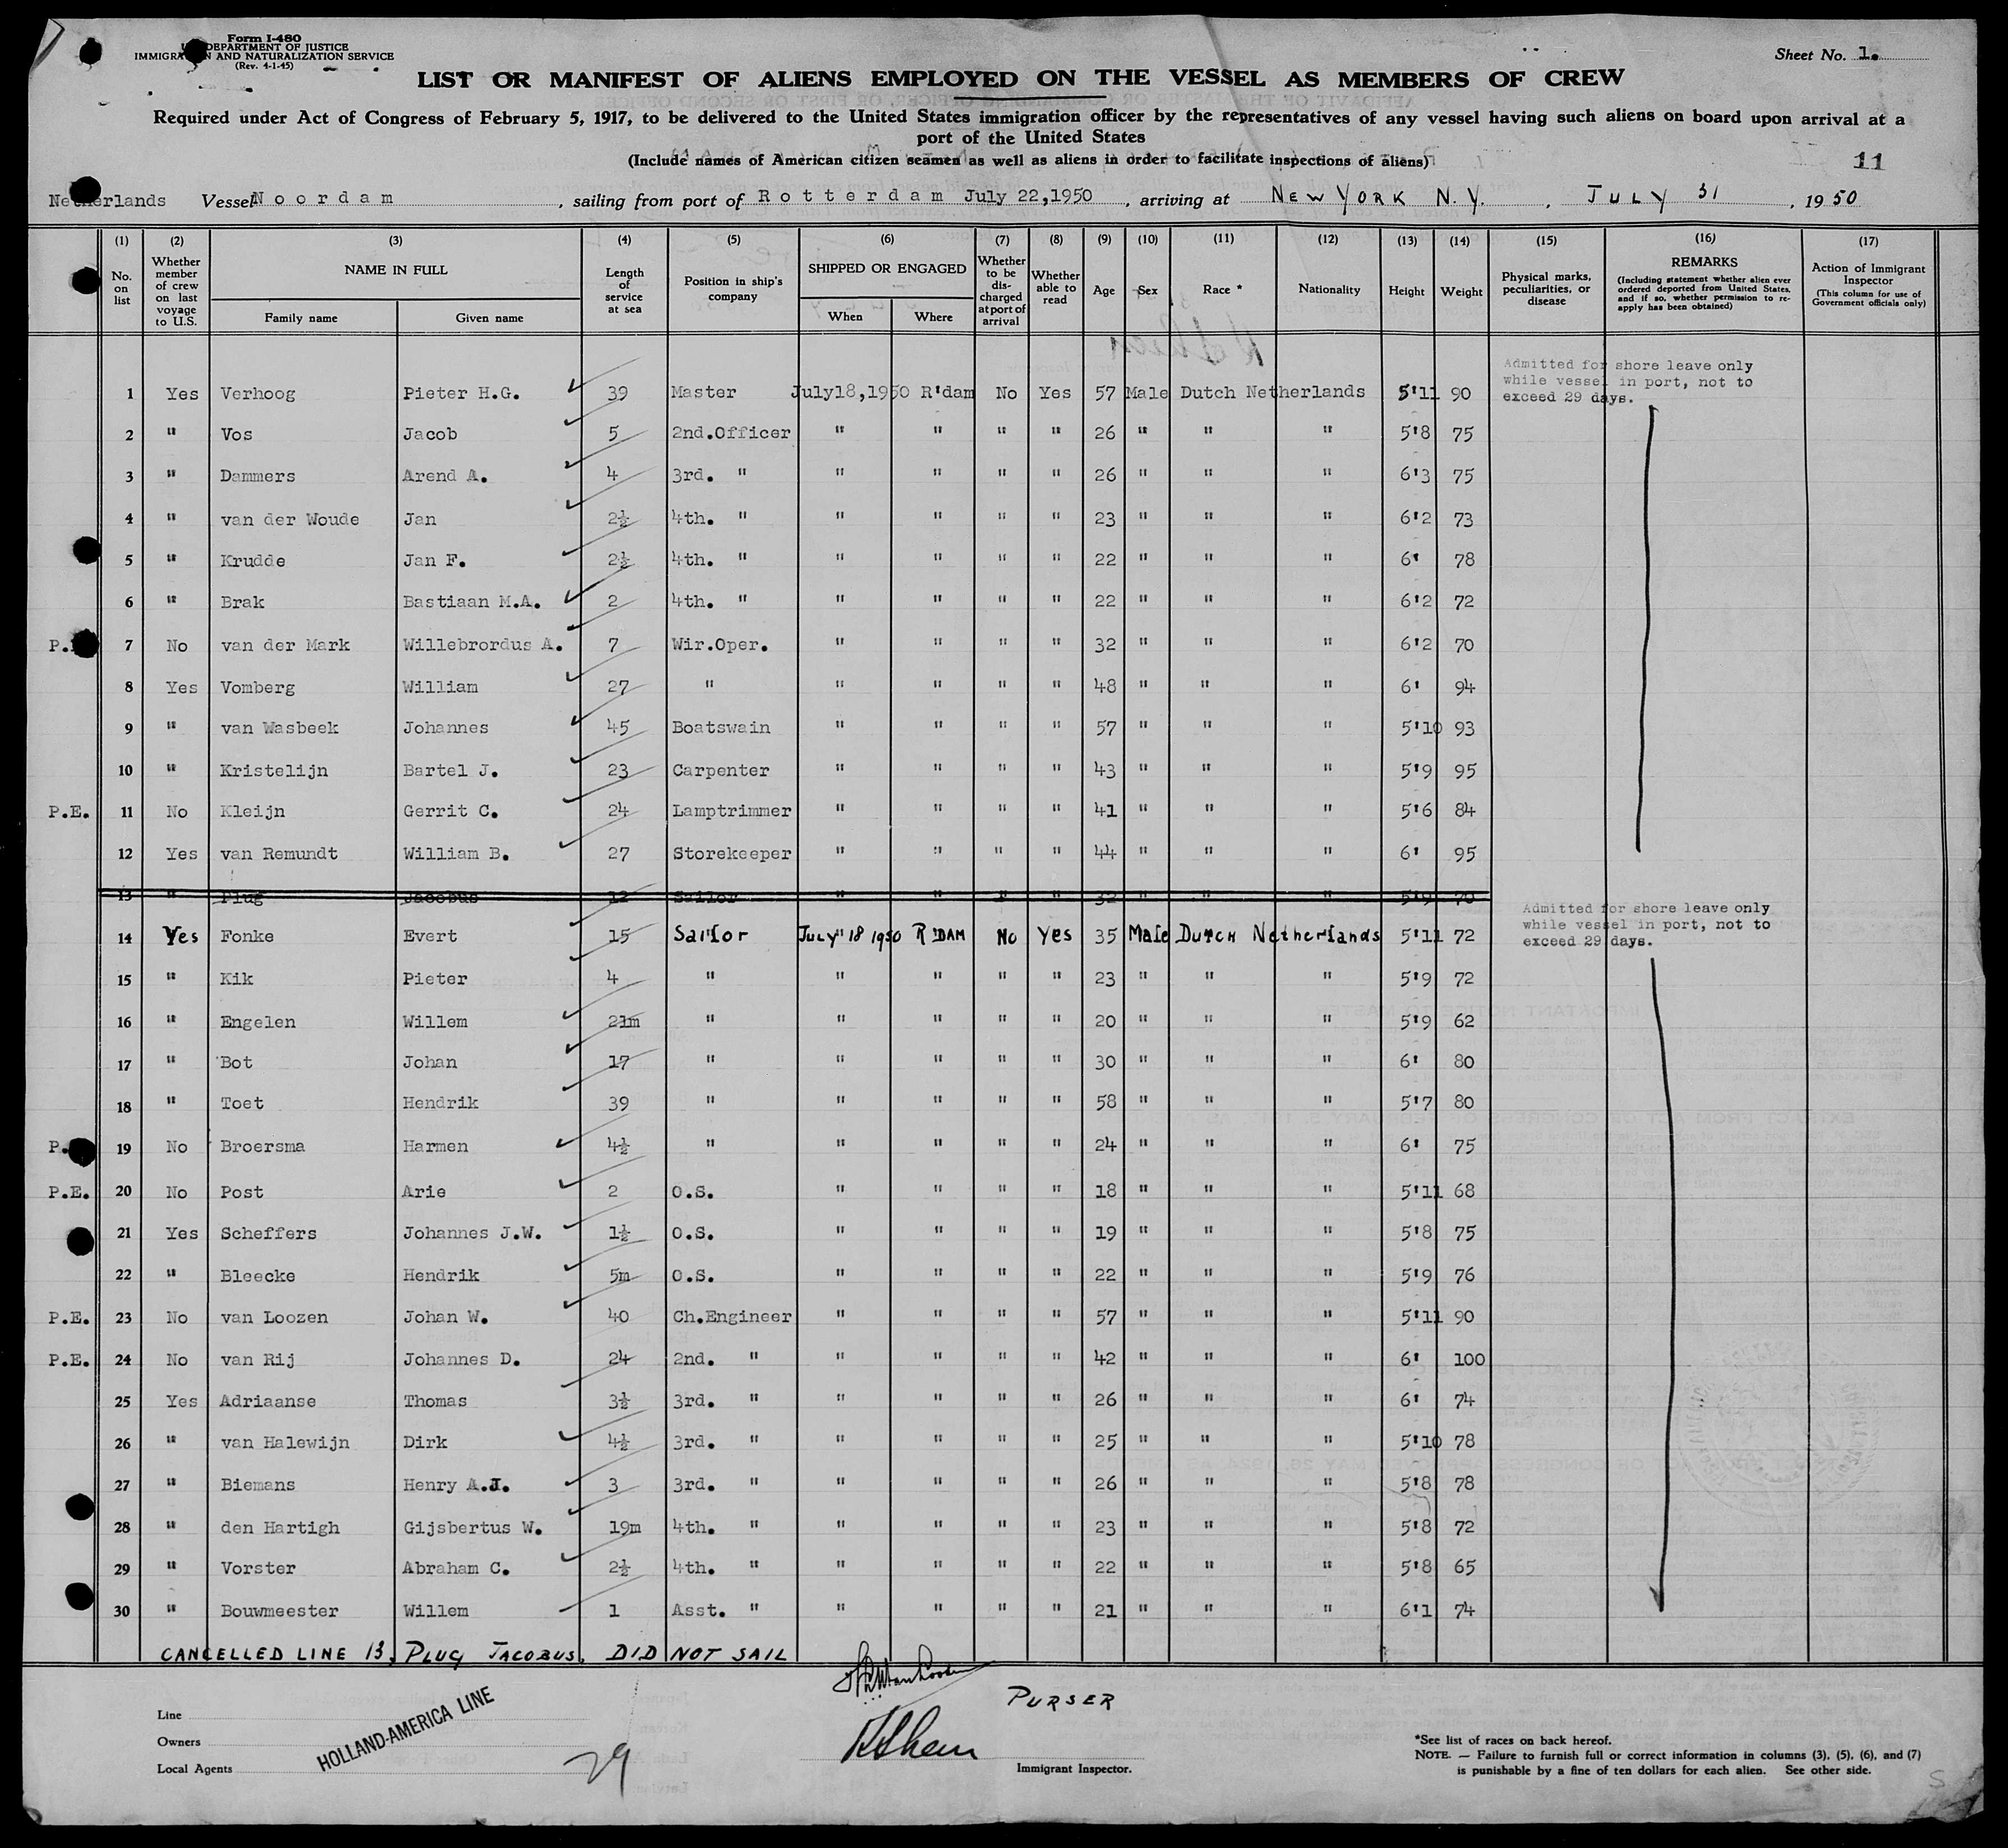 Form I-480
DEPARTMENT OF JUSTICE
IMMIGRATION AND NATURALIZATION SERVICE
(Rev. 4-1-45)
Sheet No. 1.
LIST OR MANIFEST OF ALIENS EMPLOYED ON THE VESSEL AS MEMBERS OF CREW
Required under Act of Congress of February 5, 1917, to be delivered to the United States immigration officer by the representatives of any vessel having such aliens on board upon arrival at a
port of the United States
(Include names of American citizen seamen as well as aliens in order to facilitate inspections of aliens)
11
Netherlands Vessel Noordam, sailing from port of Rotterdam July 22,1950, arriving at NEW YORK N.Y., JULY 31, 1950
(1) (2) (3) (4) (5) (6) (7) (8) (9) (10) (11) (12) (13) (14) (15) (16) (17)
No. on list
Whether member of crew on last voyage to U.S.
NAME IN FULL
Family name
Given name
Length of service at sea
Position in ship's company
SHIPPED OR ENGAGED
When
Where
Whether to be discharged at port of arrival
Whether able to read
Age
Sex
Race *
Nationality
Height
Weight
Physical marks, peculiarities, or disease
REMARKS
(Including statement whether alien ever ordered deported from United States, and if so, whether permission to re-apply has been obtained)
Action of Immigrant Inspector
(This column for use of Government officials only)
Admitted for shore leave only
while vessel in port, not to
exceed 29 days.
1 Yes Verhoog Pieter H.G. 39 Master July18,1950 R'dam No Yes 57 Male Dutch Netherlands 5'11 90
2 " Vos Jacob 5 2nd.Officer " " " " 26 " " " 5'8 75
3 " Dammers Arend A. 4 3rd. " " " " " 26 " " " 6'3 75
4 " van der Woude Jan 2½ 4th. " " " " " 23 " " " 6'2 73
5 " Krudde Jan F. 2½ 4th. " " " " " 22 " " " 6' 78
6 " Brak Bastiaan M.A. 2 4th. " " " " " 22 " " " 6'2 72
P. 7 No van der Mark Willebrordus A. 7 Wir.Oper. " " " " 32 " " " 6'2 70
8 Yes Vomberg William 27 " " " " " 48 " " " 6' 94
9 " van Wasbeek Johannes 45 Boatswain " " " " 57 " " " 5'10 93
10 " Kristelijn Bartel J. 23 Carpenter " " " " 43 " " " 5'9 95
P.E. 11 No Kleijn Gerrit C. 24 Lamptrimmer " " " " 41 " " " 5'6 84
12 Yes van Remundt William B. 27 Storekeeper " " " " 44 " " " 6' 95
13 " Plug Jacobus 12 Sailor " " " " 32 " " " 5'9 70
Admitted for shore leave only
while vessel in port, not to
exceed 29 days.
14 Yes Fonke Evert 15 Sailor JULY 18 1950 R'DAM No Yes 35 Male DUTCH Netherlands 5'11 72
15 " Kik Pieter 4 " " " " " 23 " " " 5'9 72
16 " Engelen Willem 21m " " " " " 20 " " " 5'9 62
17 " Bot Johan 17 " " " " " 30 " " " 6' 80
18 " Toet Hendrik 39 " " " " " 58 " " " 5'7 80
P. 19 No Broersma Harmen 4½ " " " " " 24 " " " 6' 75
P.E. 20 No Post Arie 2 O.S. " " " " 18 " " " 5'11 68
21 Yes Scheffers Johannes J.W. 1½ O.S. " " " " 19 " " " 5'8 75
22 " Bleecke Hendrik 5m O.S. " " " " 22 " " " 5'9 76
P.E. 23 No van Loozen Johan W. 40 Ch.Engineer " " " " 57 " " " 5'11 90
P.E. 24 No van Rij Johannes D. 24 2nd. " " " " " 42 " " " 6' 100
25 Yes Adriaanse Thomas 3½ 3rd. " " " " " 26 " " " 6' 74
26 " van Halewijn Dirk 4½ 3rd. " " " " " 25 " " " 5'10 78
27 " Biemans Henry A.J. 3 3rd. " " " " " 26 " " " 5'8 78
28 " den Hartigh Gijsbertus W. 19m 4th. " " " " " 23 " " " 5'8 72
29 " Vorster Abraham C. 2½ 4th. " " " " " 22 " " " 5'8 65
30 " Bouwmeester Willem 1 Asst. " " " " " 21 " " " 6'1 74
CANCELLED LINE 13, PLUG JACOBUS, DID NOT SAIL
PURSER
Line
Owners
Local Agents
HOLLAND-AMERICA LINE
29
Immigrant Inspector.
*See list of races on back hereof.
NOTE. — Failure to furnish full or correct information in columns (3), (5), (6), and (7)
is punishable by a fine of ten dollars for each alien. See other side.